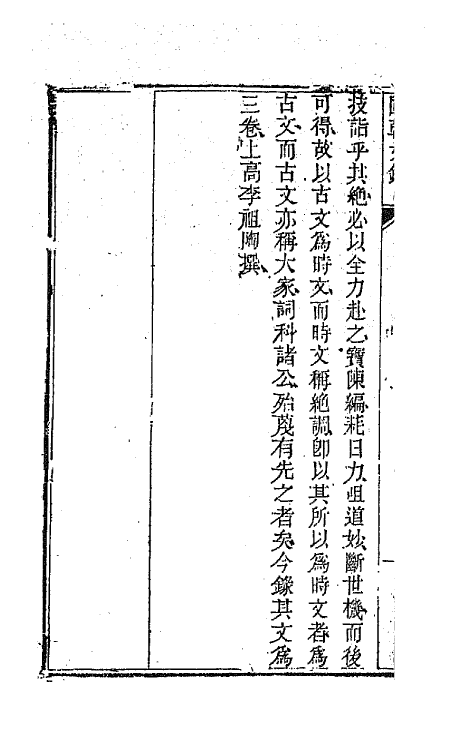 技詣乎其絶必以全力赴之寶陳編耗日力咀道妙斷世機而後
可得故以古文爲時文而時文稱絶調卽以其所以爲時文者爲
古文而古文亦稱大家詞科諸公殆蔑有先之者矣今錄其文爲
三卷上高李祖陶撰